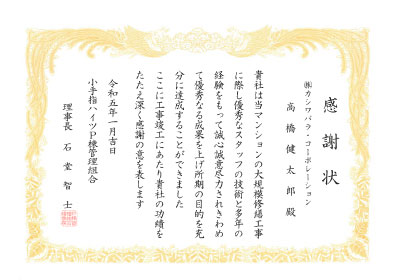 感謝状
㈱カシワバラ・コーポレーション
高橋健太郎 殿
貴社は当マンションの大規模修繕工事
に際し優秀なスタッフの技術と多年の
経験をもって誠心誠意尽力されきわめ
て優秀なる成果を上げ所期の目的を充
分に達成することができました
ここに工事竣工にあたり貴社の功績を
たたえ深く感謝の意を表します
令和五年一月吉日
小手指ハイツP棟管理組合
理事長 石堂智士